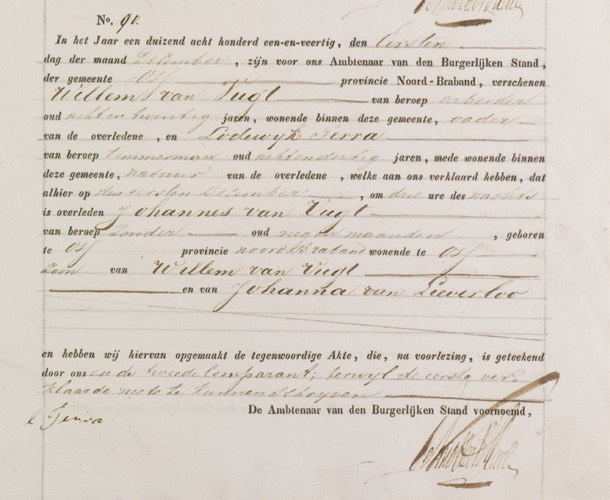 No. 90.
In het Jaar een duizend acht honderd een-en-veertig, den Eersten
dag der maand December, zijn voor ons Ambtenaar van den Burgerlijken Stand,
der gemeente Oss provincie Noord-Braband, verschenen
Willem van Vugt van beroep arbeider
oud acht en twintig jaren, wonende binnen deze gemeente, vader
van de overledene, en Lodewyk Serra
van beroep timmerman oud achtendertig jaren, mede wonende binnen
deze gemeente, nabuur van de overledene, welke aan ons verklaard hebben, dat
alhier op den eersten December, om drie ure des nachts
is overleden Johannes van Vugt
van beroep Zonder oud negen maanden, geboren
te Oss provincie noord Braband wonende te Oss
Zoon van Willem van Vugt
en van Johanna van Lieverloo
en hebben wij hiervan opgemaakt de tegenwoordige Akte, die, na voorlezing, is geteekend
door ons en de tweede Comparant; terwyl de eerste ver-
klaarde niet te kunnen schryven
De Ambtenaar van den Burgerlijken Stand voornoemd,